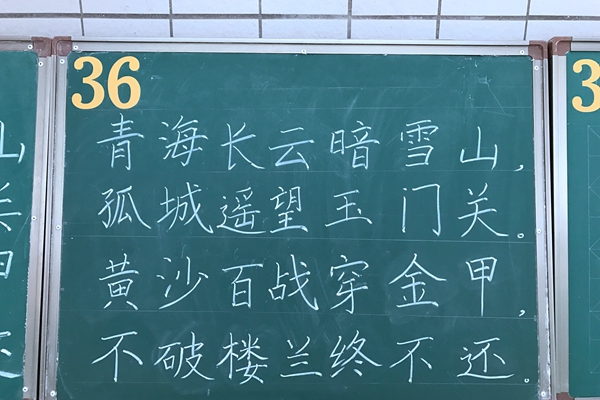 36
青海长云暗雪山,
孤城遥望玉门关。
黄沙百战穿金甲,
不破楼兰终不还。